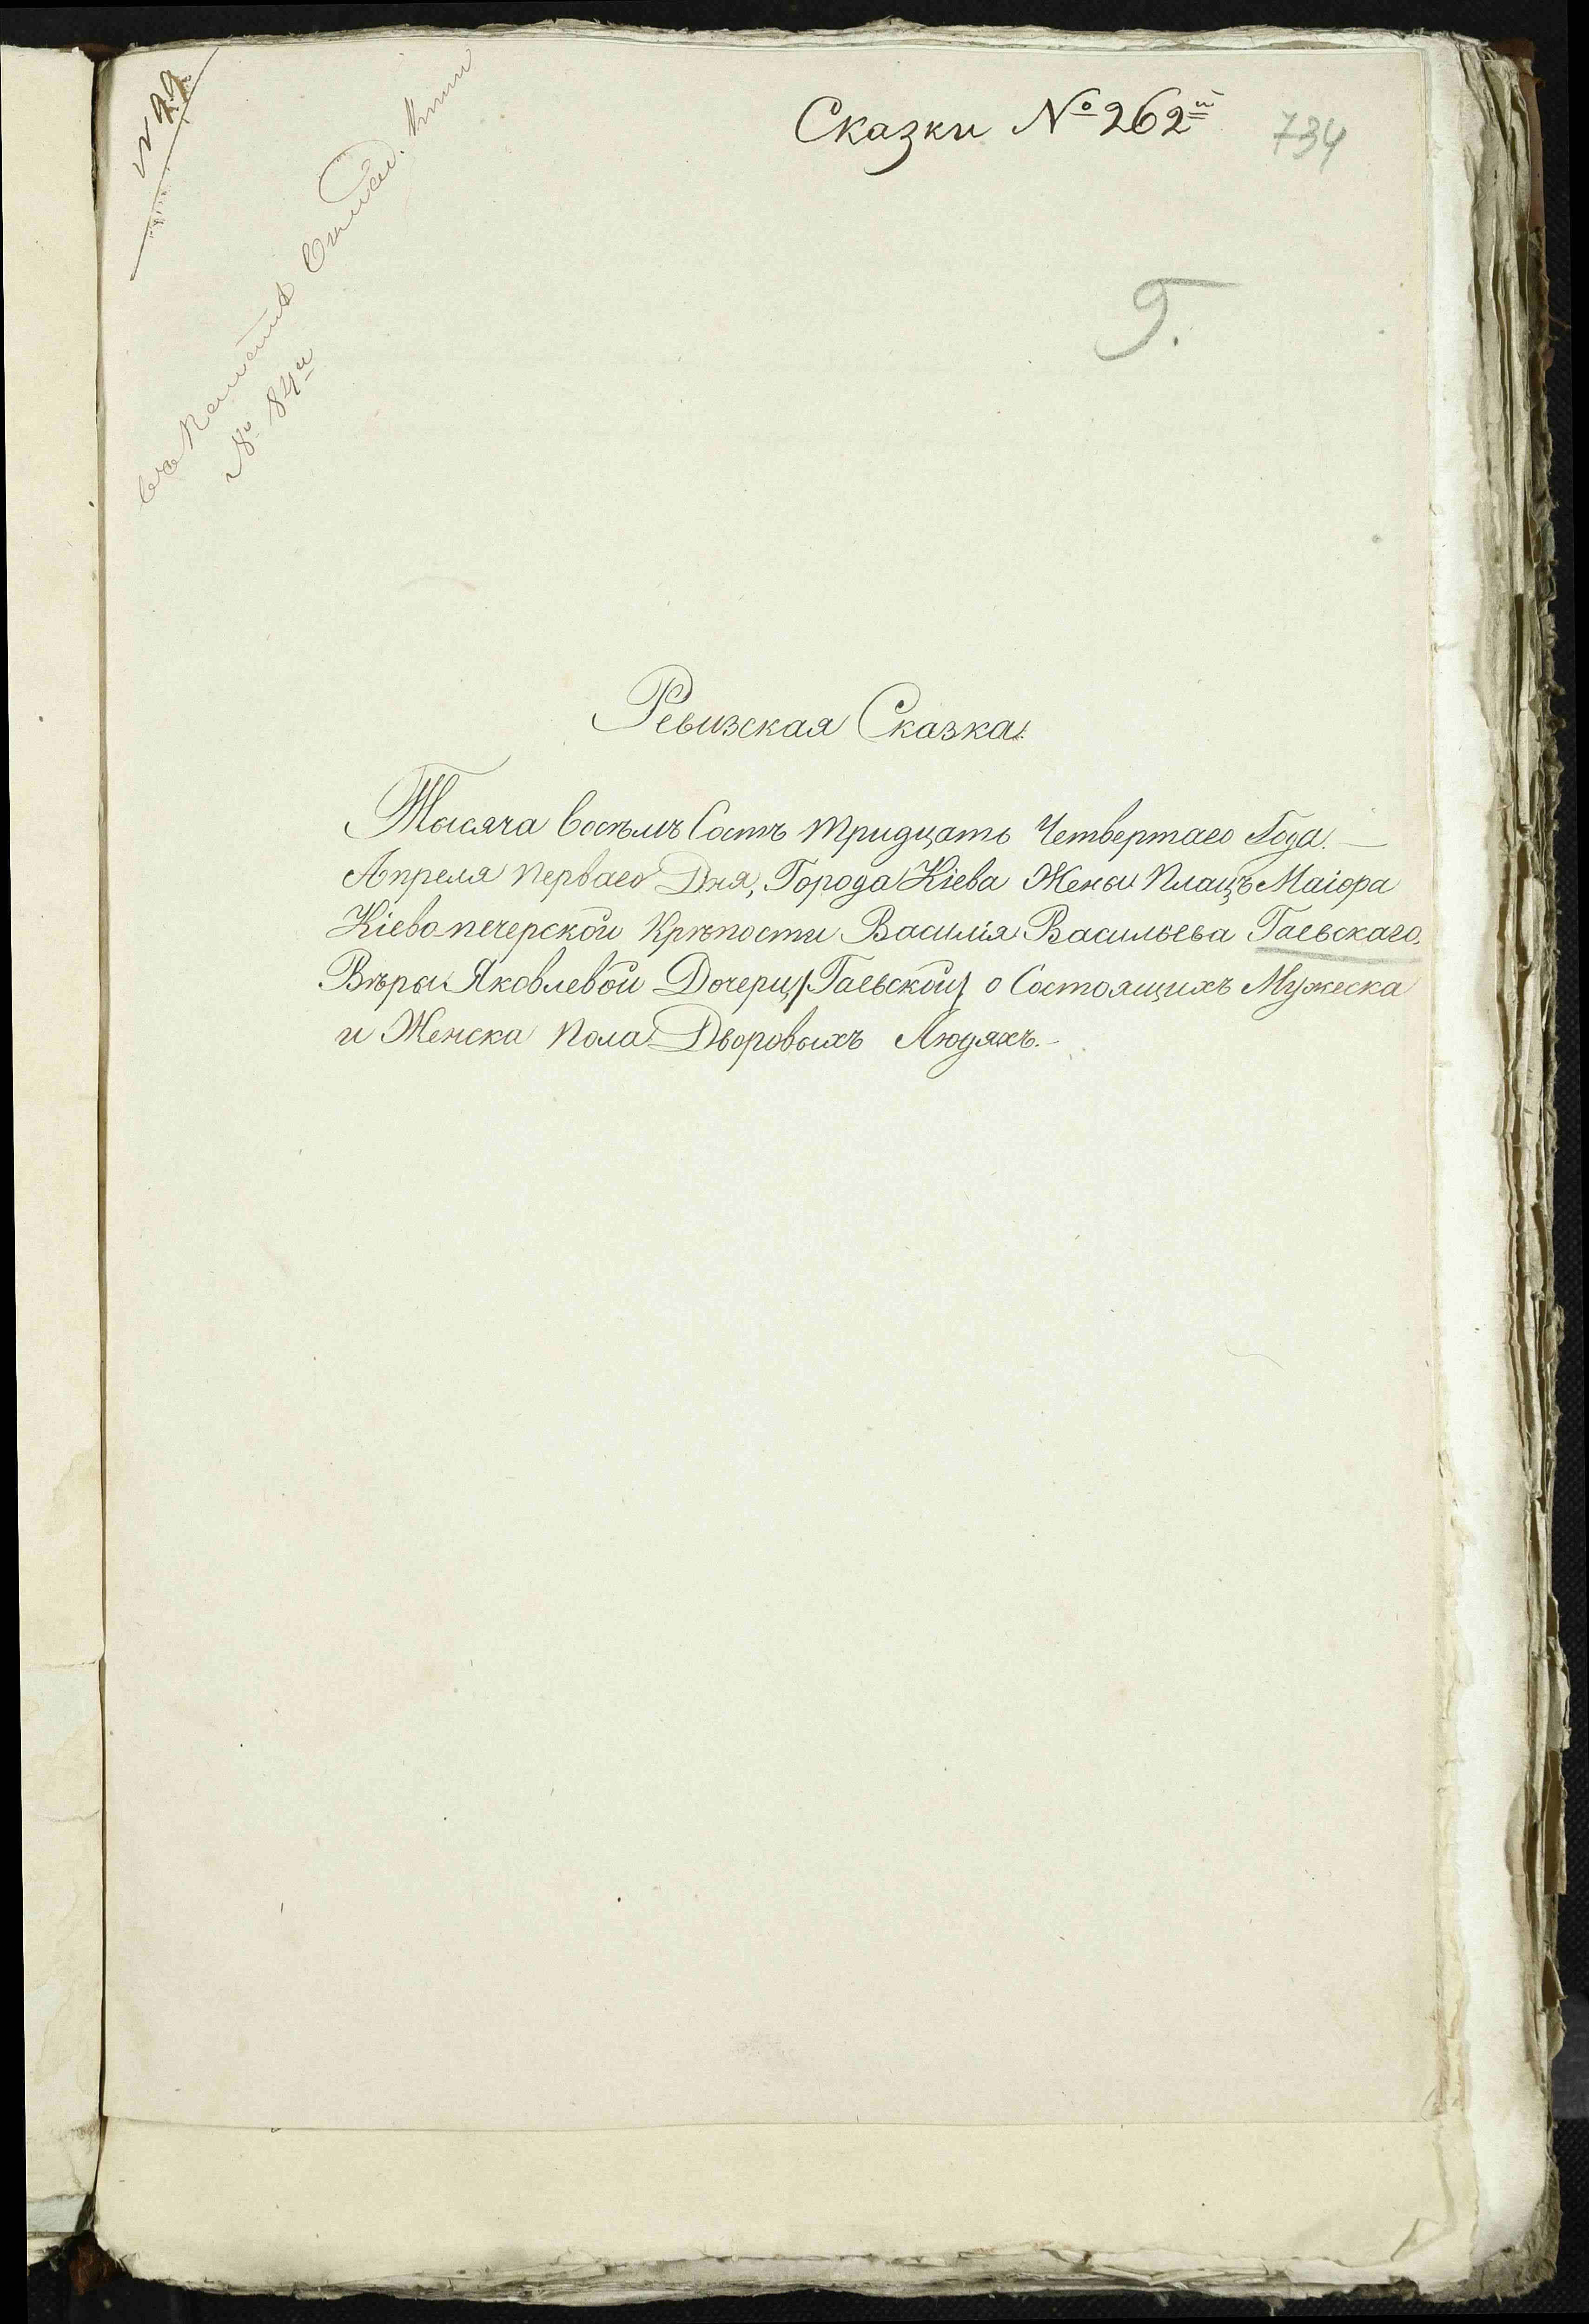 Сказки № 262й
734
№ 84й
Г.
Ревизская Сказка.
Тысяча восѣмъ Сотъ тридцать Четвертаго Года. —
Апреля перваго Дня, Города Кіева Жены Плацъ Маіора
Кіевопечерской Крѣпости Василія Васильева Гаевскаго,
Вѣры Яковлевой Дочери /Гаевской/ о Состоящихъ Мужеска
и Женска пола Дворовыхъ Людяхъ. -